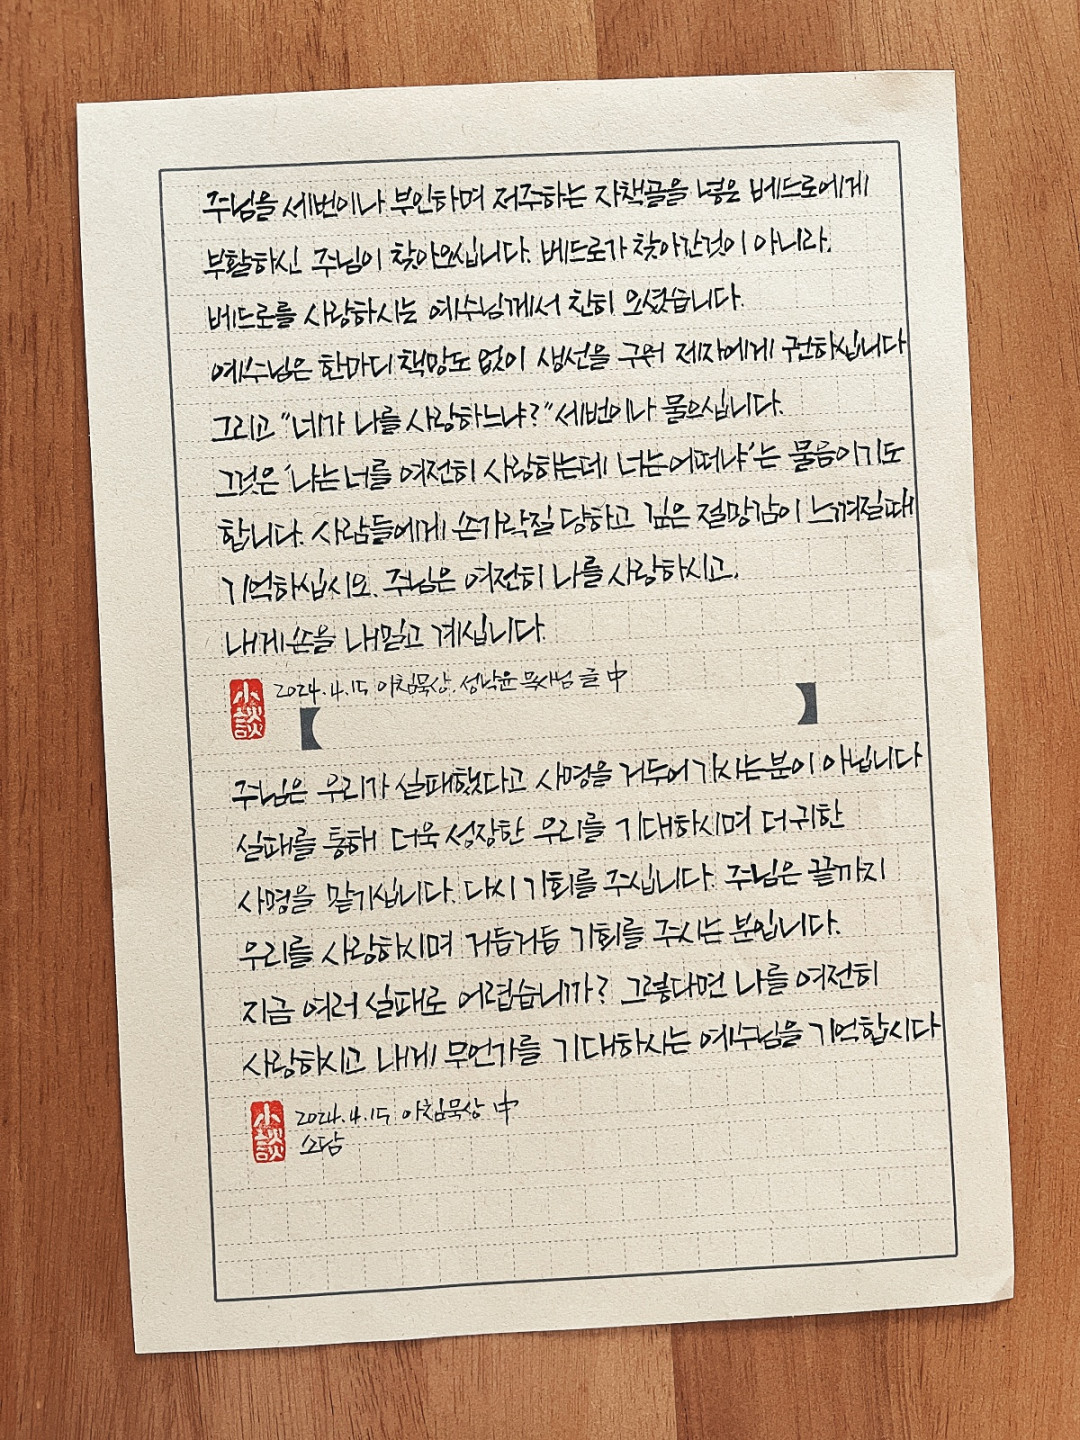 주님을 세번이나 부인하며 저주하는 자책골을 넣은 베드로에게
부활하신 주님이 찾아오십니다. 베드로가 찾아간것이 아니라.
베드로를 사랑하시는 예수님께서 친히 오셨습니다.
예수님은 한마디 책망도 없이 생선을 구워 제자에게 권하십니다
그리고 "네가 나를 사랑하느냐?" 세번이나 물으십니다.
그것은 '나는 너를 여전히 사랑하는데 너는 어떠냐'는 물음이기도
합니다. 사람들에게 손가락질 당하고 깊은 절망감이 느껴질때
기억하십시오. 주님은 여전히 나를 사랑하시고,
내게 손을 내밀고 계십니다.
小談 2024.4.15 아침묵상. 성낙윤 목사님 글 中
주님은 우리가 실패했다고 사명을 거두어 가시는분이 아닙니다
실패를 통해 더욱 성장한 우리를 기대하시며 더 귀한
사명을 맡기십니다. 다시 기회를 주십니다. 주님은 끝까지
우리를 사랑하시며 거듭거듭 기회를 주시는 분입니다.
지금 여러 실패로 어렵습니까? 그렇다면 나를 여전히
사랑하시고 내게 무언가를 기대하시는 예수님을 기억합시다
小談 2024.4.15 아침묵상 中
소담